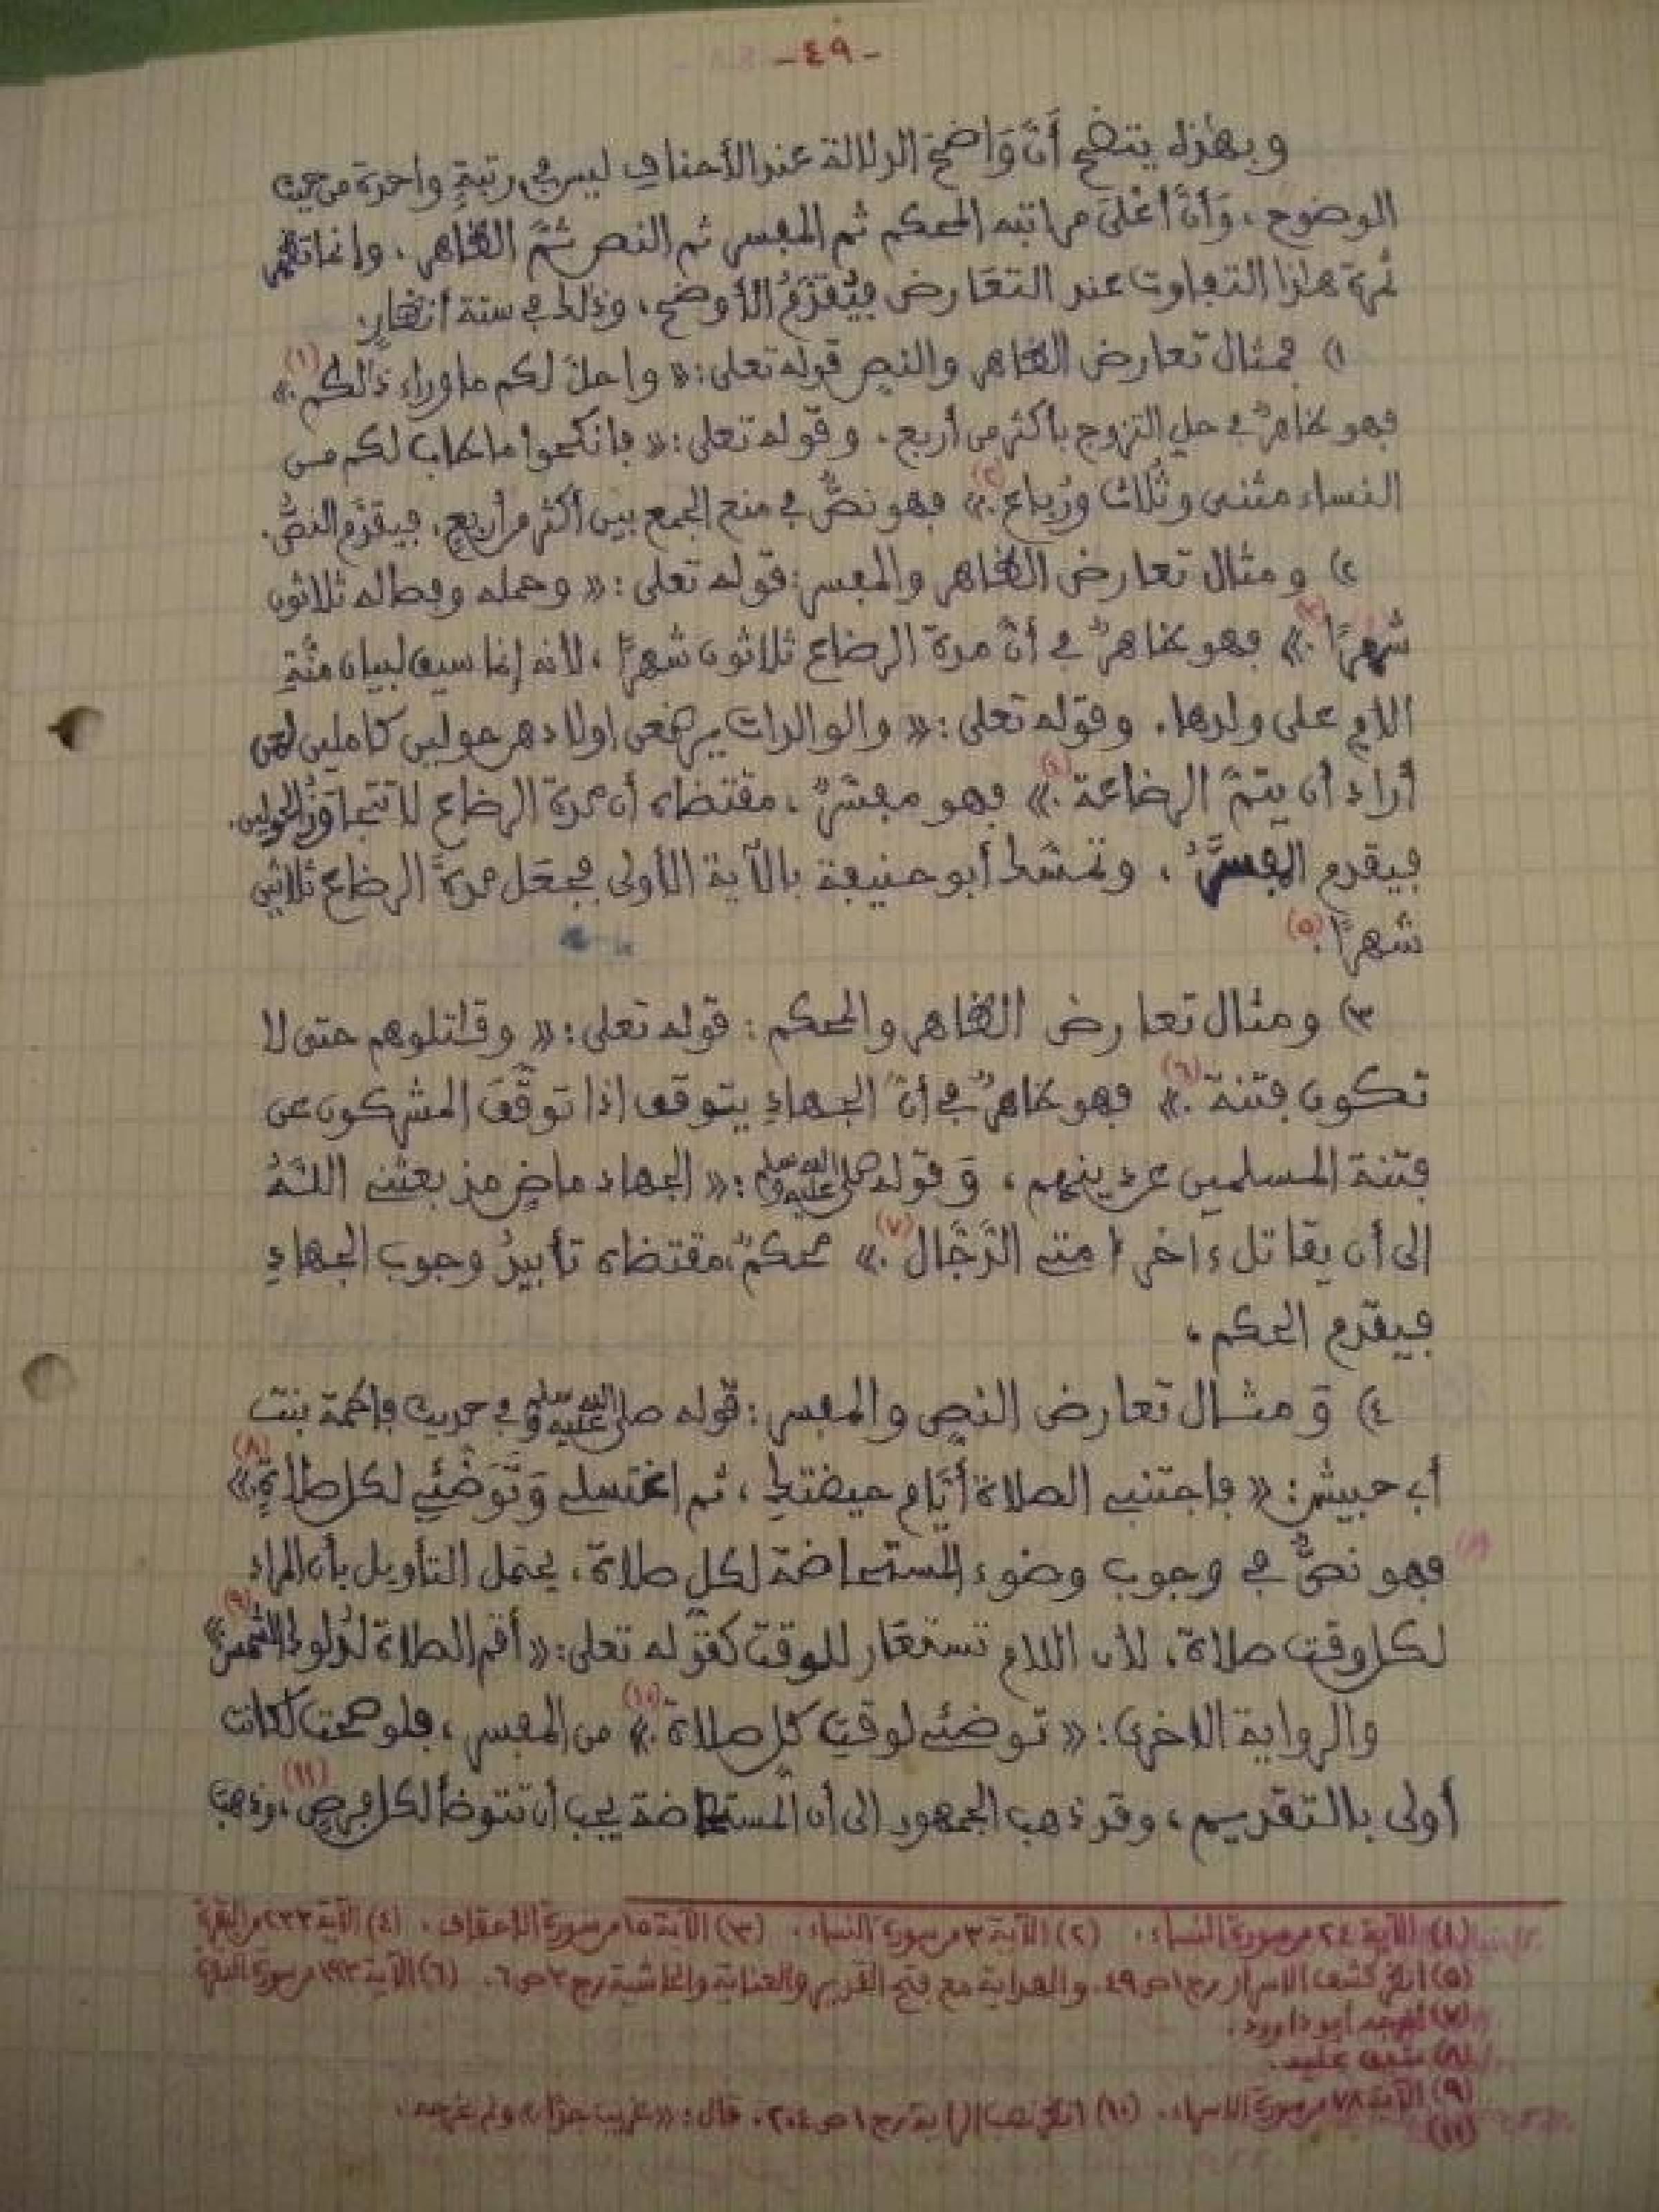 -٤٩-
وبهٰذا يتضح أَنَّ وَاضحَ الدلالة عند الأحناف ليس في رتبةٍ واحدة من حيث
الوضوح، وَأنَّ أعْلَى مراتبه المحكم ثم المفسر ثم النص ثُمَّ الظاهر، وإنما تظهر
ثمرة هٰذا التفاوت عند التعَارض فيُقَدَّمُ الأوضح، وذٰلك في ستة أنظارٍ.
١) فمثال تعارض الظاهر والنص قوله تعلى: « واحلَّ لكم ما وراء ذٰلكم.»(١)
فهو ظاهرٌ في حل التزوج بأكثر من أربع، وقوله تعلى: « فانكحوا ما طاب لكم من
النساء مثنى وثُلاث ورُباع.»(٢) فهو نصٌّ في منع الجمع بين أكثر من أربعٍ، فيقدَّم النصُّ.
٢) ومثال تعارض الظاهر والمفسر: قوله تعلى: « وحمله وفصاله ثلاثون
شهرًا.»(٣) فهو ظاهرٌ في أنَّ مدة الرضاع ثلاثون شهرًا، لأنه إنما سيق لبيان منَّةِ
الأمِ على ولدها. وقوله تعلى: « والوالدات يرضعن اولادهن حولين كاملين لمن
أراد أن يتمَّ الرضاعة.»(٤) فهو مفسَّرٌ، مقتضاه أن مدة الرضاع لا تتجاوَزُ الحولين.
فيقدم المفسَّرُ، وتمسَّك أبو حنيفة بالآية الأولى فجعَل مدةَ الرضاع ثلاثين
شهرًا.(٥)
٣) ومثال تعارض الظاهر والمحكم: قوله تعلى: « وقٰتلوهم حتى لا
تكون فتنة.»(٦) فهو ظاهرٌ في أنَّ الجهادِ يتوقف اذا توقَّفَ المشركون عن
فتنة المسلمين عن دينهم، وَقوله صلى الله عليه وسلم: « الجهاد ماضٍ مذ بعثني اللَّهُ
إلى أن يقاتل ءاخر امتي الدَّجَّال.»(٧) محكمٌ، مقتضاه تأبيدُ وجوب الجهادِ
فيقدم المحكم.
٤) وَمثال تعارض النصِ والمفسر: قوله صلى الله عليه وسلم في حديث فاطمة بنت
أبي حبيش: « فاجتنبي الصلاة أيَّام حيضتكِ، ثم اغتسلي وَتَوَضَّئي لكل صلاةٍ.»(٨)
فهو نصٌّ في وجوب وضوء المستحاضة لكل صلاة، يحتمل التأويل بأن المراد
لكل وقت صلاة، لأن اللام تستعَار للوقت كقوله تعلى: « أقم الصلاة لدُلوك الشَّمس»(٩)
والرواية الاخرى: « توضئي لوقتِ كل صلاة.»(١٠) من المفسر، فلو صحت لكانت
أولى بالتقديم، وقد ذهب الجمهور الى أن المستحاضة يجب أن تتوضأ لكل فرض،(١١) وذهب
(١) الآية ٢٤ من سورة النساء. (٢) الآية ٣ من سورة النساء. (٣) الآية ١٥ من سورة الاحقاف. (٤) الآية ٢٣٣ من البقرة
(٥) انظر كشف الاسرار ج ١ ص ٤٩. والهداية مع فتح القدير والعناية والحاشية ج ٣ ص ٦. (٦) الآية ١٩٣ من سورة البقرة
(٧) أخرجه أبو داوود.
(٨) متفق عليه.
(٩) الآية ٧٨ من سورة الاسراء. (١٠) انظر نصب الراية ج ١ ص ٢٠٤. قال: « غريب جدًّا» ولم يخرجه.
(١١)